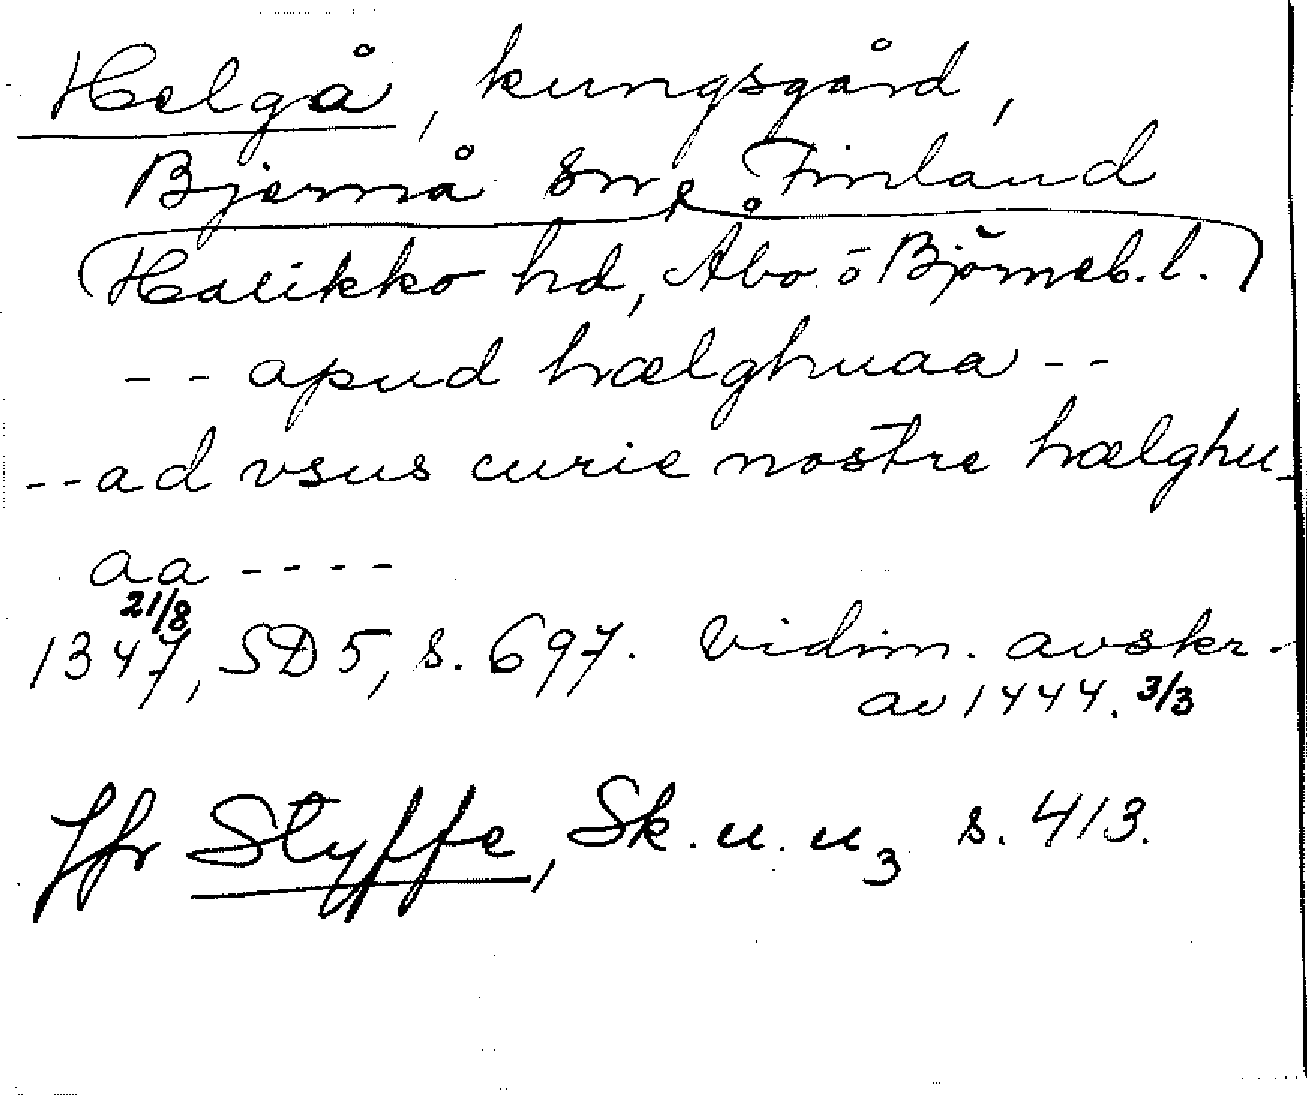 Helgå, kungsgård,
Bjernå sn, Finland
(Halikko hd, Åbo o Björneb. l.)
-- apud hælghuaa --
-- ad vsus curie nostre hælghu-
aa ----
21/8
1347, SD 5, s. 697. Vidim. avskr.
av 1444. 3/3
Jfr Styffe, Sk. u. u3 s. 413.